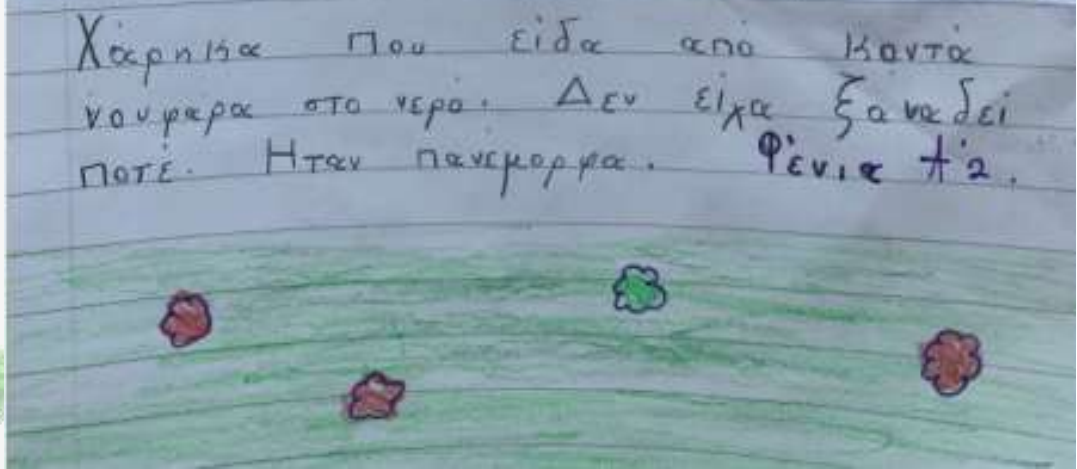 Χάρηκα που είδα από κοντά
νούφαρα στο νερό. Δεν είχα ξαναδεί
ποτέ. Ήταν πανέμορφα. Φένια Α'2.